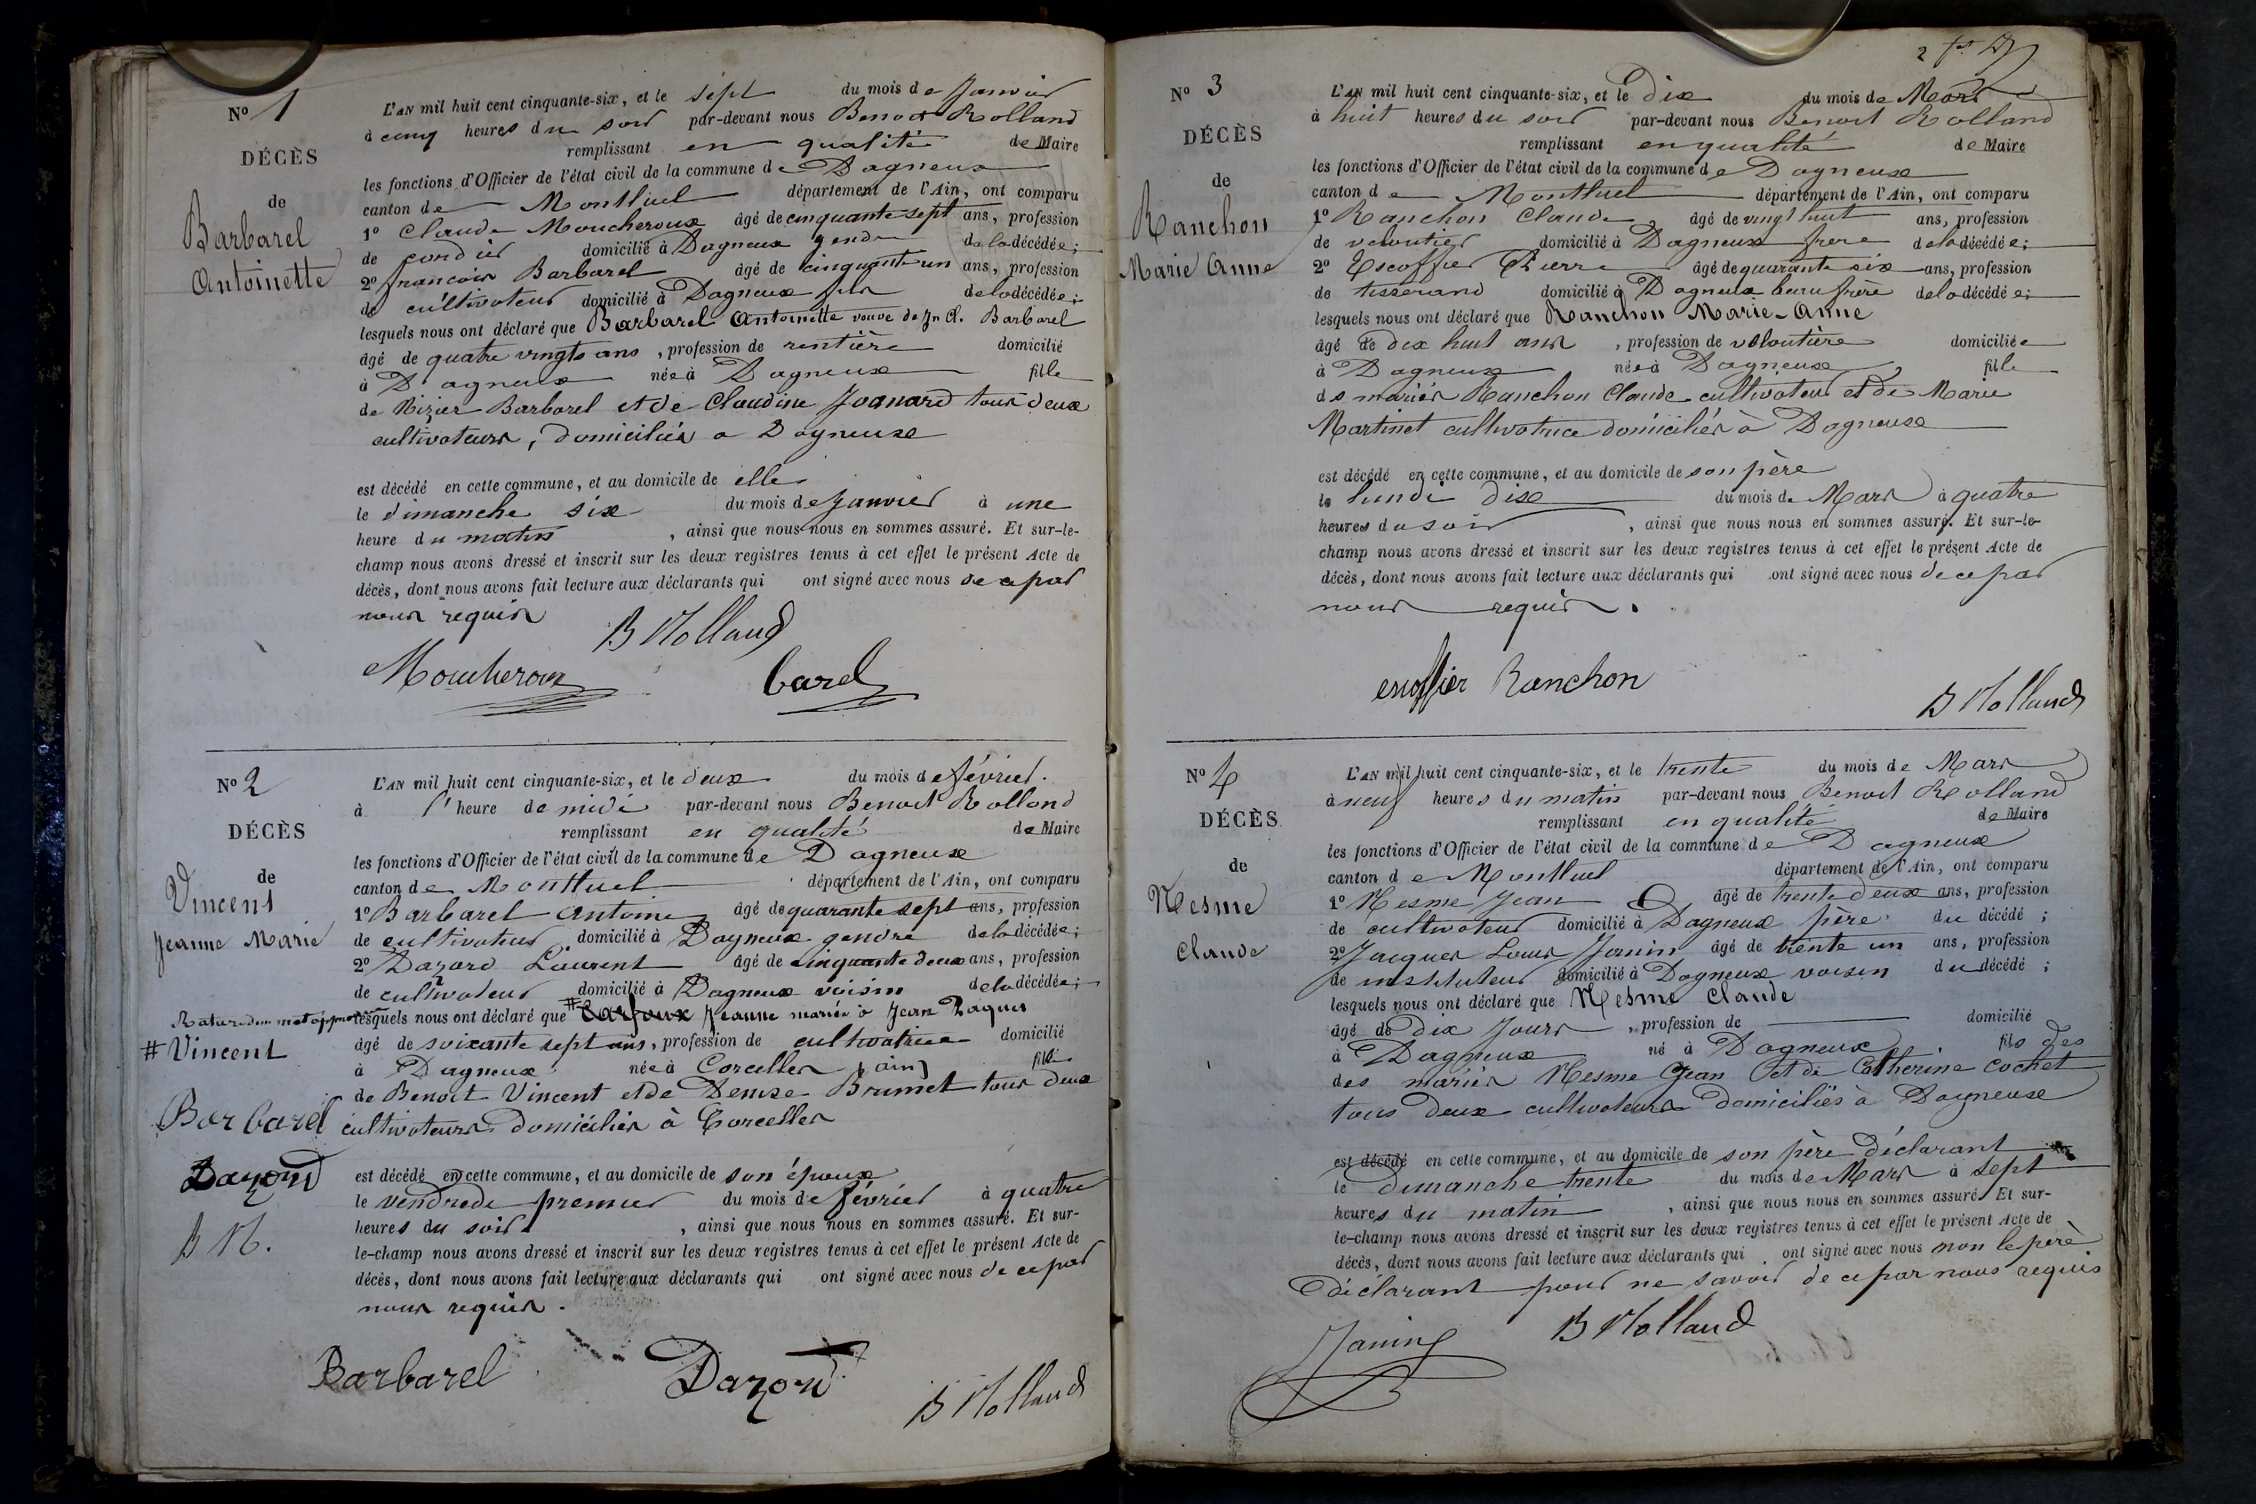 No 1
DÉCÈS
de
Barbarel
Antoinette
L'AN mil huit cent cinquante-six, et le sept du mois de Janvier
à cinq heures du soir par-devant nous Benoit Rolland
remplissant en qualité de Maire
les fonctions d'Officier de l'état civil de la commune de Dagneux
canton de Montluel département de l'Ain, ont comparu
1o Claude Moucheroux âgé de cinquante sept ans, profession
de domicilié à Dagneux gendre de la décédée;
2o francois Barbarel âgé de cinquante un ans, profession
de cultivateur domicilié à Dagneux fils de la décédée;
lesquels nous ont déclaré que Barbarel Antoinette veuve de Jn Cl. Barbarel
âgé de quatre vingts ans, profession de rentière domicilié
à Dagneux née à Dagneux fille
de Nizier Barbarel et de Claudine Joanard tous deux
cultivateurs, domiciliés a Dagneux
est décédé en cette commune, et au domicile de elle
le dimanche six du mois de Janvier à une
heure du matin, ainsi que nous nous en sommes assuré. Et sur-le-
champ nous avons dressé et inscrit sur les deux registres tenus à cet effet le présent Acte de
décès, dont nous avons fait lecture aux déclarants qui ont signé avec nous de ce par
nous requis
B Rolland
Moucheroux barel
No 2
DÉCÈS
de
Vincent
Jeanne Marie
L'AN mil huit cent cinquante-six, et le deux du mois de février.
à l'heure de midi par-devant nous Benoit Rolland
remplissant en qualité de Maire
les fonctions d'Officier de l'état civil de la commune de Dagneux
canton de Montluel département de l'Ain, ont comparu
1o Barbarel Antoine âgé de quarante sept ans, profession
de cultivateur domicilié à Dagneux gendre de la décédée;
2o Dazord Laurent âgé de cinquante deux ans, profession
de cultivateur domicilié à Dagneux voisin de la décédée;
lesquels nous ont déclaré que # Jeanne mariée à Jean Paques
âgé de soixante sept ans, profession de cultivatrice domicilié
à Dagneux née à Corcelles (ain) fille
de Benoit Vincent et de Denise Brunet tous deux
cultivateurs domiciliés à Corcelles
Rature d'un mot approuvée
# Vincent
Barbarel
Dazord
B R.
est décédé en cette commune, et au domicile de son époux
le vendredi premier du mois de février à quatre
heures du soir, ainsi que nous nous en sommes assuré. Et sur-
le-champ nous avons dressé et inscrit sur les deux registres tenus à cet effet le présent Acte de
décès, dont nous avons fait lecture aux déclarants qui ont signé avec nous de ce par
nous requis.
Barbarel Dazord B Rolland
No 3
DÉCÈS
de
Ranchon
Marie Anne
L'AN mil huit cent cinquante-six, et le dix du mois de Mars
à huit heures du soir par-devant nous Benoit Rolland
remplissant en qualité de Maire
les fonctions d'Officier de l'état civil de la commune de Dagneux
canton de Montluel département de l'Ain, ont comparu
1o Ranchon Claude âgé de vingt huit ans, profession
de veloutier domicilié à Dagneux frère de la décédée;
2o Escoffier Pierre âgé de quarante six ans, profession
de tisserand domicilié à Dagneux beau frère de la décédée;
lesquels nous ont déclaré que Ranchon Marie-Anne
âgé de dix huit ans, profession de veloutière domiciliée
à Dagneux née à Dagneux fille
des mariés Ranchon Claude cultivateur et de Marie
Martinet cultivatrice domiciliés à Dagneux
est décédé en cette commune, et au domicile de son père
le lundi dix du mois de Mars à quatre
heures du soir, ainsi que nous nous en sommes assuré. Et sur-le-
champ nous avons dressé et inscrit sur les deux registres tenus à cet effet le présent Acte de
décès, dont nous avons fait lecture aux déclarants qui ont signé avec nous de ce par
nous requis.
escoffier Ranchon
B Rolland
No 4
DÉCÈS
de
Mesme
Claude
L'AN mil huit cent cinquante-six, et le trente du mois de Mars
à neuf heures du matin par-devant nous Benoit Rolland
remplissant en qualité de Maire
les fonctions d'Officier de l'état civil de la commune de Dagneux
canton de Montluel département de l'Ain, ont comparu
1o Mesme Jean âgé de trente deux ans, profession
de cultivateur domicilié à Dagneux père du décédé;
2o Jacques Louis Janin âgé de trente un ans, profession
de instituteur domicilié à Dagneux voisin du décédé;
lesquels nous ont déclaré que Mesme Claude
âgé de dix Jours, profession de domicilié
à Dagneux né à Dagneux fils des
des mariés Mesme Jean et de Catherine Cochet
tous deux cultivateurs domiciliés à Dagneux
est décédé en cette commune, et au domicile de son père déclarant
le dimanche trente du mois de Mars à sept
heures du matin, ainsi que nous nous en sommes assuré. Et sur-
le-champ nous avons dressé et inscrit sur les deux registres tenus à cet effet le présent Acte de
décès, dont nous avons fait lecture aux déclarants qui ont signé avec nous non le père
déclarant pour ne savoir de ce par nous requis
Janin B Rolland